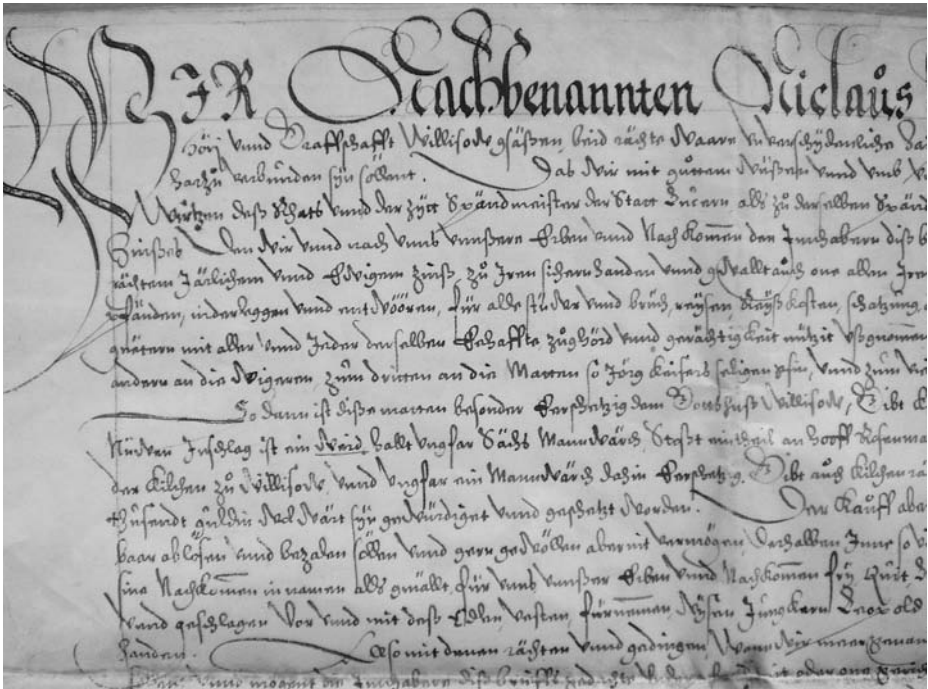 WIR Nachbenannten Niclaus
vnnd Graffschafft Willisow gsäßen, beid rächte waare vnuerschydenliche
harzů verbunden syn söllent. Das wir mit gůttem wüßen vnnd vmb
Würtzen deß Rhats vnnd der zytt Spändmeister der Statt Lucern als zů derselben Spänd
Zinßes Den wir vnnd nach vnns vnnßere Erben vnnd Nachkomen den Innhabern diß
rächtem Järlichem vnnd Ewigem zinß, zů Iren sichern handen vnnd gwallt auch one allen Iren
pfänden, niderleggen vnnd entwöören, für alle stüwr vnnd brüch, reysen, Reyßkosten, schatzung,
güetern mit aller vnnd Jeder derselben Ehaffte, zůghörd vnnd gerächtigkeit nützit vßgnommen
andern an die Wigeren, zům dritten an die Matten so Jörg Keisers seligen gsin, vnnd zům
So dann ist diße matten besonder Eerschetzig dem Gottshuß Willisow, Gibt
Nüwen Inschlag ist ein Weid, hallt vngfar Sächs Mannwärch, Stoßt ein theil an hooff
der Kilchen zů Willisow, vnnd vngfar ein Mannwärch dahin Eerschetzig. Gibt auch kilchen
thůsendt guldin wol wärt syn gewürdiget vnnd geschetzt worden. Der Kauff aber
baar ablösen vnnd bezalen söllen vnnd gern gewöllen aber nit vermögen, Derhalben Inne so
sine Nachkomen in namen als gmällt, für vnns vnnßer Erben vnnd Nachkomen fry Quit
vnnd geschlagen Vor vnnd mit deß Edlen, vesten, fürnemen, wysen Junckern Leopold
handen. Also mit denen rächten vnnd gedingen, Wann wir
vnnd mogent die Innhabere diß brieffs oder one